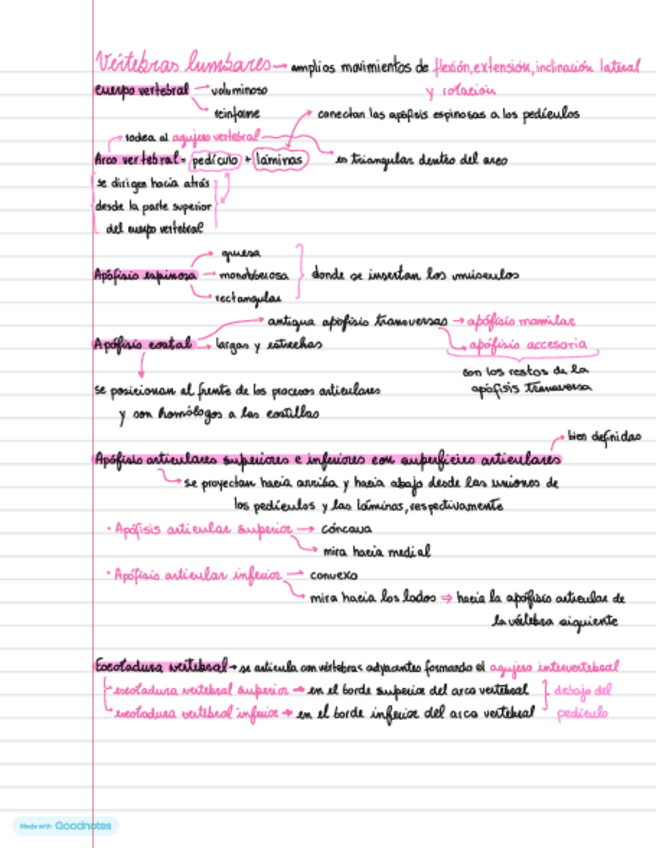 Vértebras lumbares → amplios movimientos de flexión, extensión, inclinación lateral
y rotación
cuerpo vertebral → voluminoso
→ reinforme
→ conectan las apófisis espinosas a los pedículos
→ rodea al agujero vertebral
Arco vertebral = pedículo + láminas → es triangular dentro del arco
se dirigen hacia atrás
desde la parte superior
del cuerpo vertebral
→ gruesa
Apófisis espinosa → monotuberosa } donde se insertan los músculos
→ rectangular
→ antigua apófisis transversas → apófisis mamilar
Apófisis costal → largas y estrechas → apófisis accesoria
son los restos de la
apófisis transversa
se posicionan al frente de los procesos articulares
y son homólogos a las costillas
→ bien definidas
Apófisis articulares superiores e inferiores con superficies articulares
→ se proyectan hacia arriba y hacia abajo desde las uniones de
los pedículos y las láminas, respectivamente
· Apófisis articular superior → cóncava
→ mira hacia medial
· Apófisis articular inferior → convexo
→ mira hacia los lados ⇒ hacia la apófisis articular de
la vértebra siguiente
Escotadura vertebral → se articula con vértebras adyacentes formando el agujero intervertebral
escotadura vertebral superior → en el borde superior del arco vertebral } debajo del
escotadura vertebral inferior → en el borde inferior del arco vertebral pedículo
Made with Goodnotes